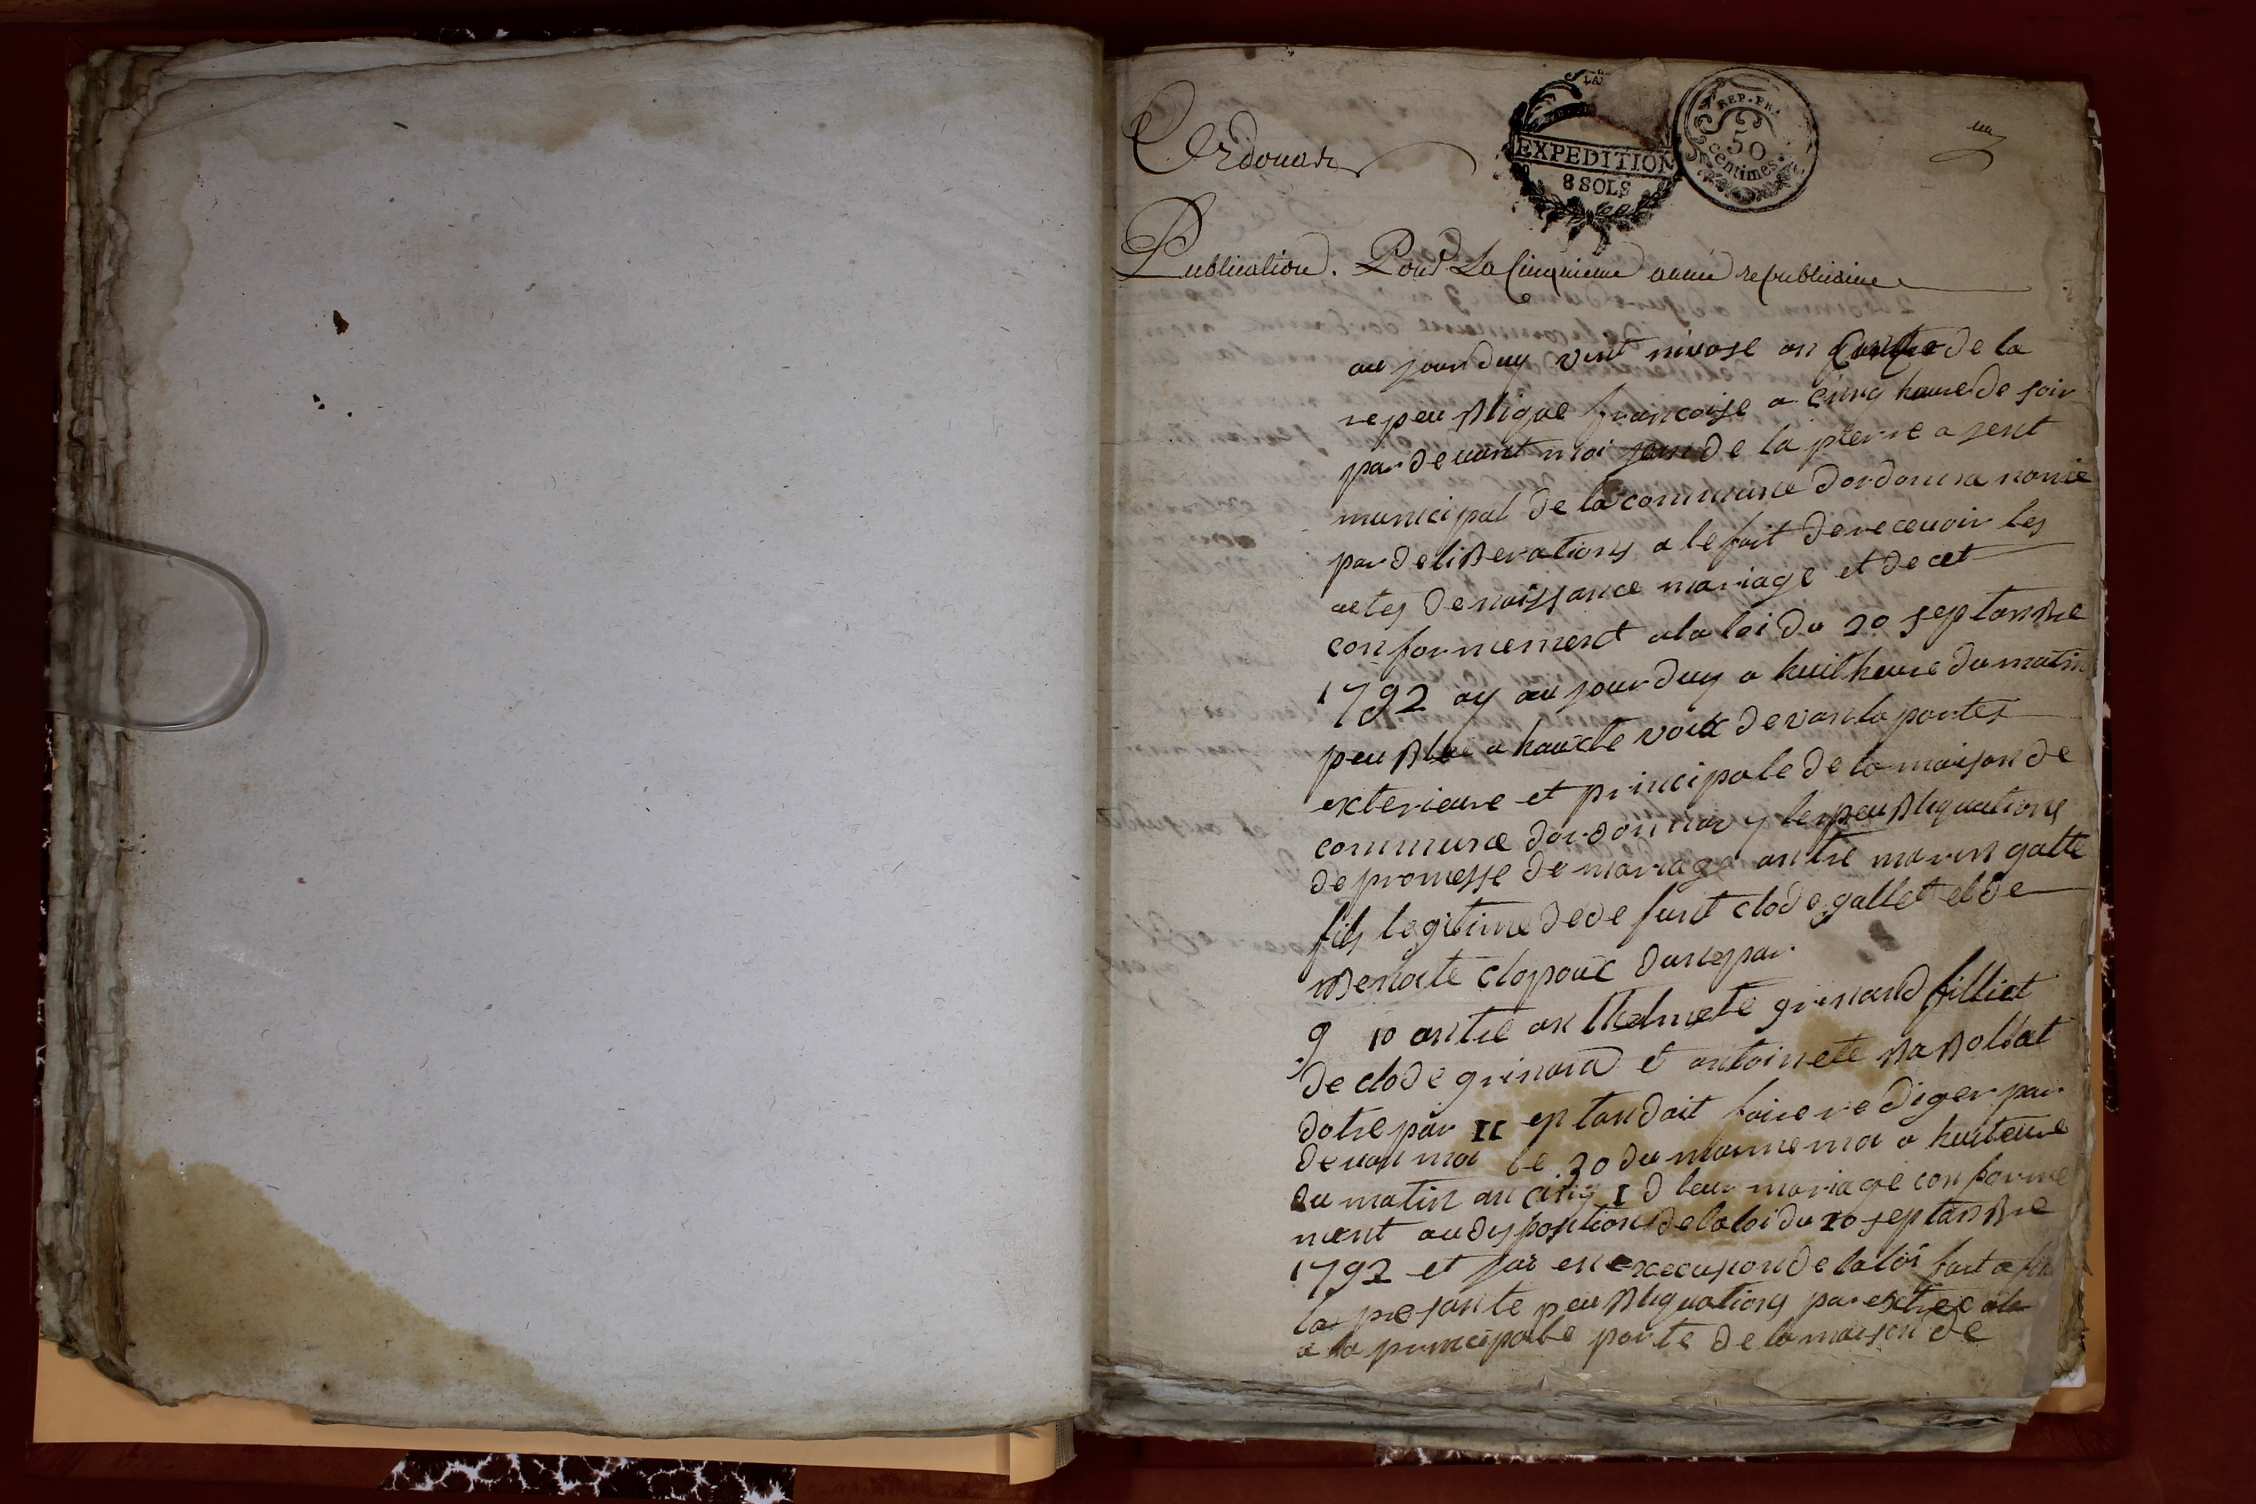 Ordonaz
EXPEDITION
8 SOLS
REP. FRA.
50
centimes.
un
Publication. Pour La Cinquieme année republicaine
au jourduy vint nivose an de la
repeublique francoise a cinq heure de soir
par devant moi jean de la pierre a jent
municipal de la commune dordonna nomé
par deliberations a le fait de recevoir les
actes de naissance mariage et decet
conformement a la loi du 20 septanbre
1792 ay au jourduy a huit heure du matin
peublié a haucte voix devan la portes
exterieure et principale de la maison de
commune dordonna les peubliquations
de promesse de mariage antre marin galle
fils legitime de defunt clode gallet et de
benoite clapouc dune par
g 10 antre anthelmete grinand fillict
de clode grinand et antoinete baboliat
dotre par II eptandait faire rediger par
devan moi le 30 du maime moi a huiteure
du matin an cinq I d leur mariage conforme
ment au disposition de la loi du 20 septanbre
1792 et jai en excecusion de la loi fait afi
la presante peubliquations par extrec
a la principale porte de la maison de